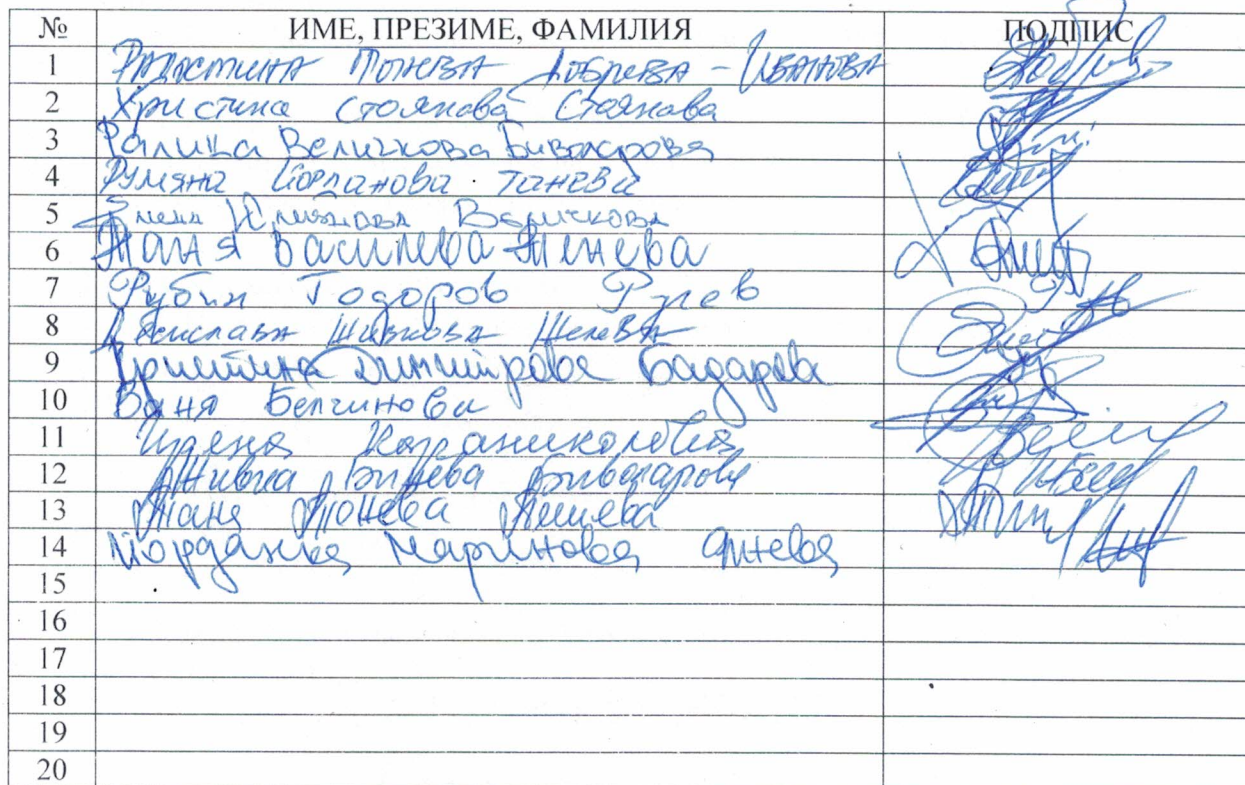 № ИМЕ, ПРЕЗИМЕ, ФАМИЛИЯ ПОДПИС
1 Радостина Тонева Добрева - Иванова
2 Христина Стоянова Стоянова
3 Ралица Величкова Биволарова
4 Румяна Йорданова Танева
5 Величкова
6 Таня Василева Тенева
7 Рубин Тодоров Русев
8 Живкова Желева
9 Христина Димитрова Бадарова
10 Ваня Белчинова
11 Ирена Караниколова
12 Живка Бинева Биволарова
13 Таня Тонева Пешева
14 Йорданка Маринова Янева
15
16
17
18
19
20